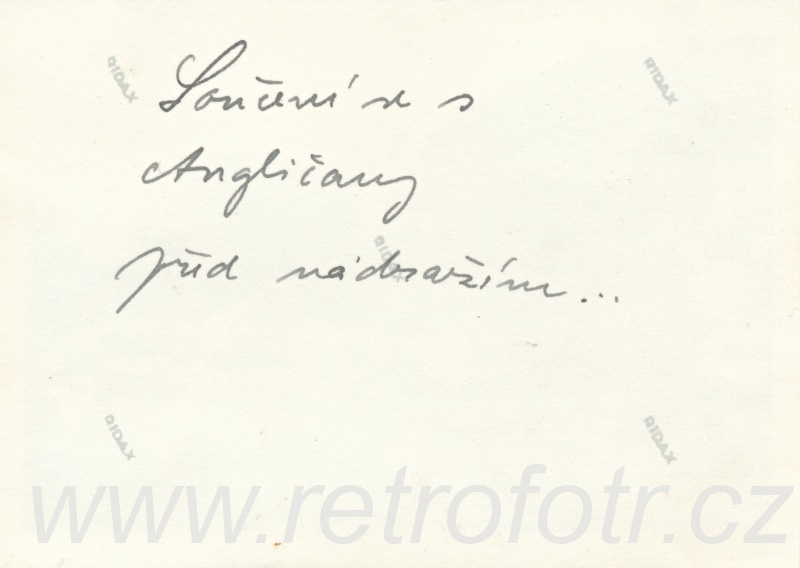 RIDAX RIDAX
Loučení se s
Angličany
před nádražím...
RIDAX
RIDAX RIDAX
www.retrofotr.cz